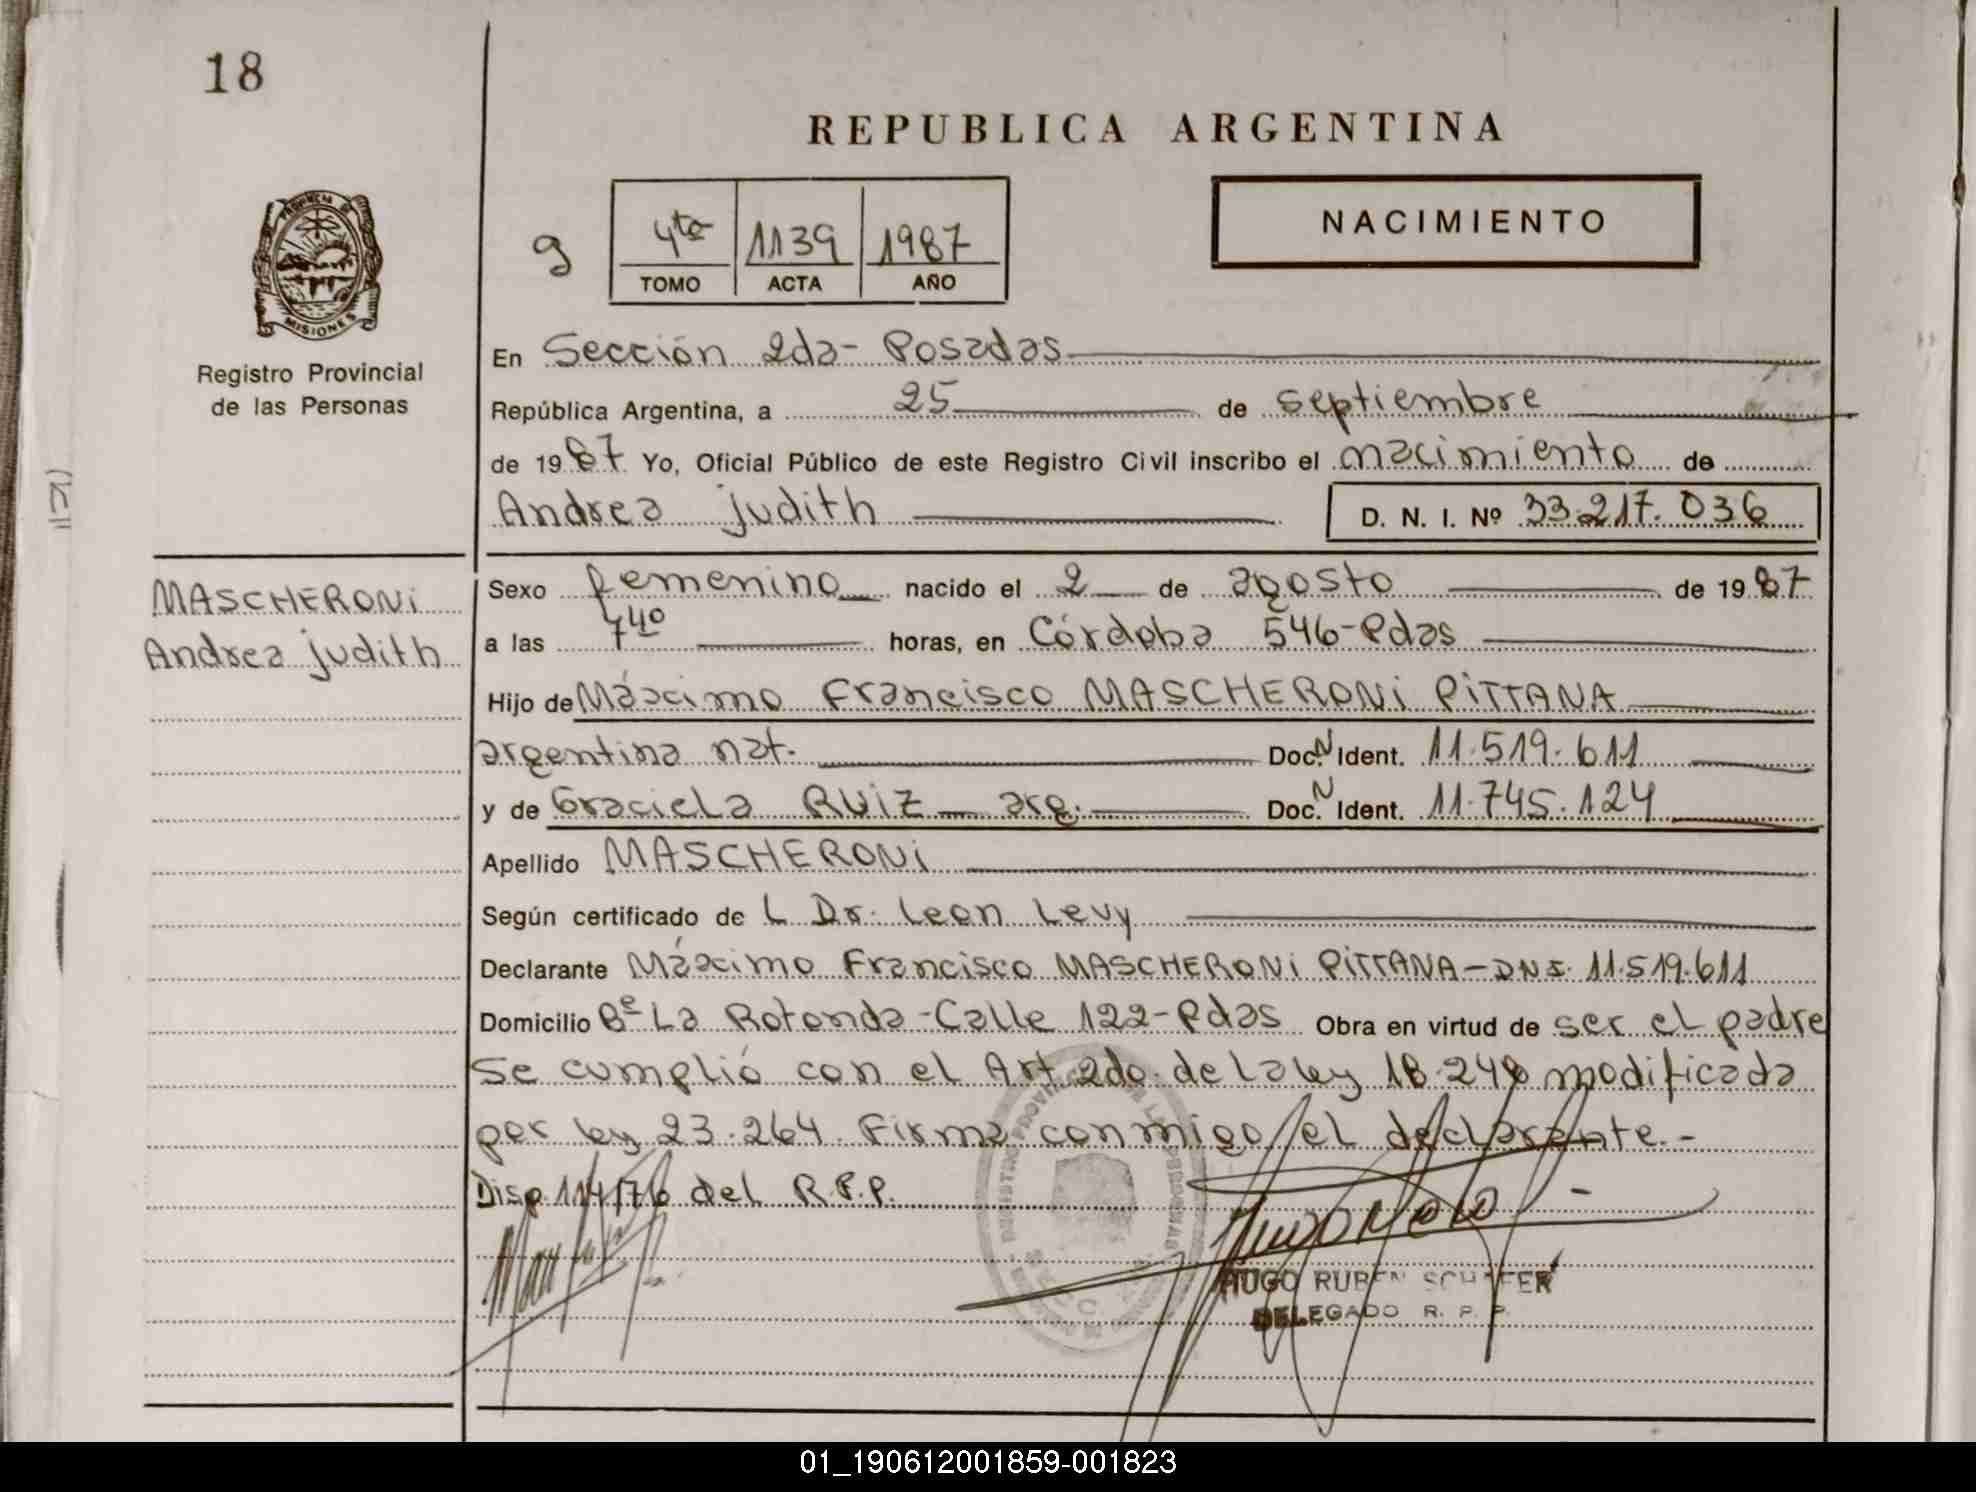 18
REPUBLICA ARGENTINA
NACIMIENTO
9
4to 1139 1987
TOMO ACTA AÑO
PROVINCIA DE
MISIONES
Registro Provincial
de las Personas
En Sección 2da- Posadas
República Argentina, a 25 de septiembre
de 1987 Yo, Oficial Público de este Registro Civil inscribo el nacimiento de
Andrea judith D. N. I. Nº 33.217.036
MASCHERONi
Andrea judith
Sexo femenino nacido el 2 de agosto de 1987
a las 7 40 horas, en Córdoba 546-Pdas
Hijo de Máximo Francisco MASCHERONi PiTTANA
argentina nat. Doc. N Ident. 11.519.611
y de Graciela RUiZ - arg. Doc. N Ident. 11.745.124
Apellido MASCHERONi
Según certificado de L Dr. Leon Levy
Declarante Máximo Francisco MASCHERONi PiTTANA-DNI. 11.519.611
Domicilio Bº La Rotonda-Calle 122-Pdas Obra en virtud de ser el padre
Se cumplió con el Art 2do. de la ley 18.248 modificada
por ley 23.264. Firma conmigo el declarante.-
Disp. 114/76 del R.P.P.
HUGO RUBEN SCHAFER
DELEGADO R. P. P.
01_190612001859-001823